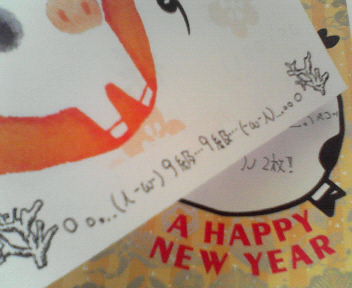 o o...(人-ω-)9級…9級…(-ω-人)...ooo
2枚!!
A HAPPY
NEW YEAR